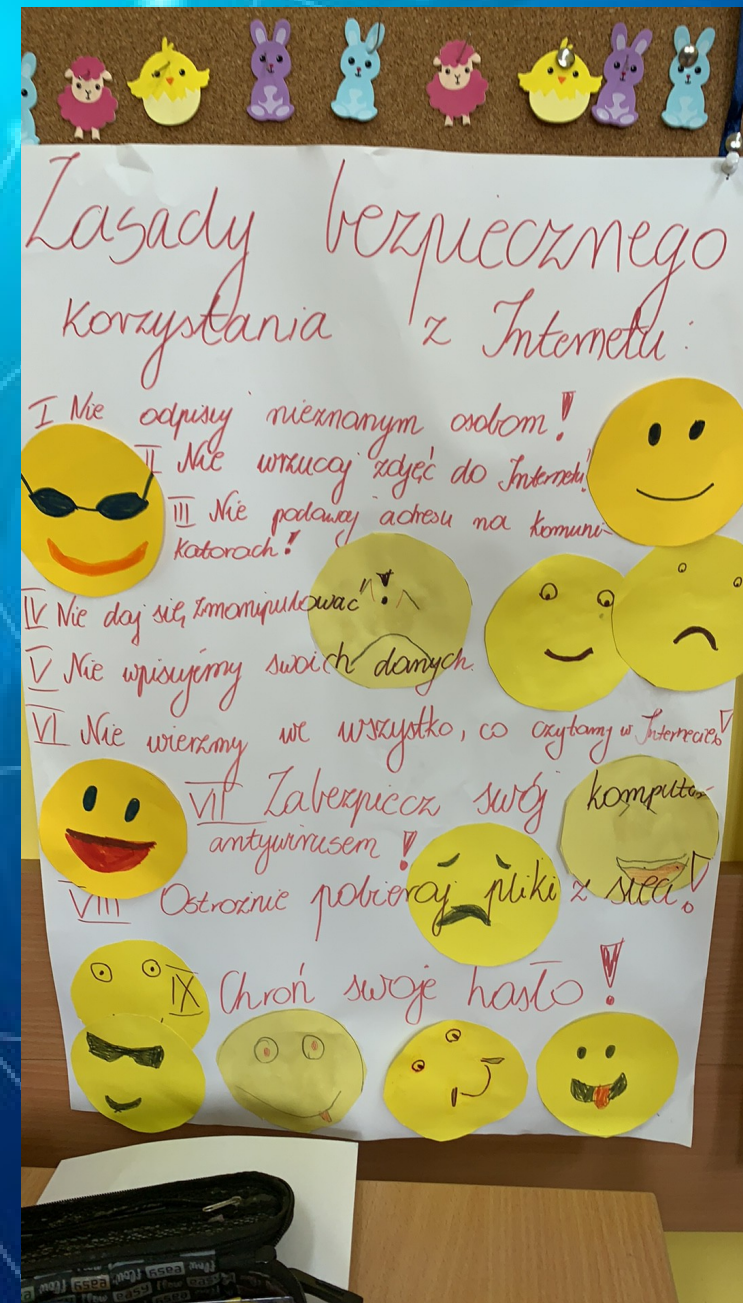 Zasady bezpiecznego
korzystania z Internetu:
I Nie odpisuj nieznanym osobom!
II Nie wrzucaj zdjęć do Internetu!
III Nie podawaj adresu na komuni-
katorach!
IV Nie daj się zmanipulować"!
V Nie wpisujemy swoich danych.
VI Nie wierzmy we wszystko, co czytamy w Internecie!
VII Zabezpiecz swój komputer
antywirusem!
VIII Ostrożnie pobieraj pliki z sieci!
IX Chroń swoje hasło!
easy
flow